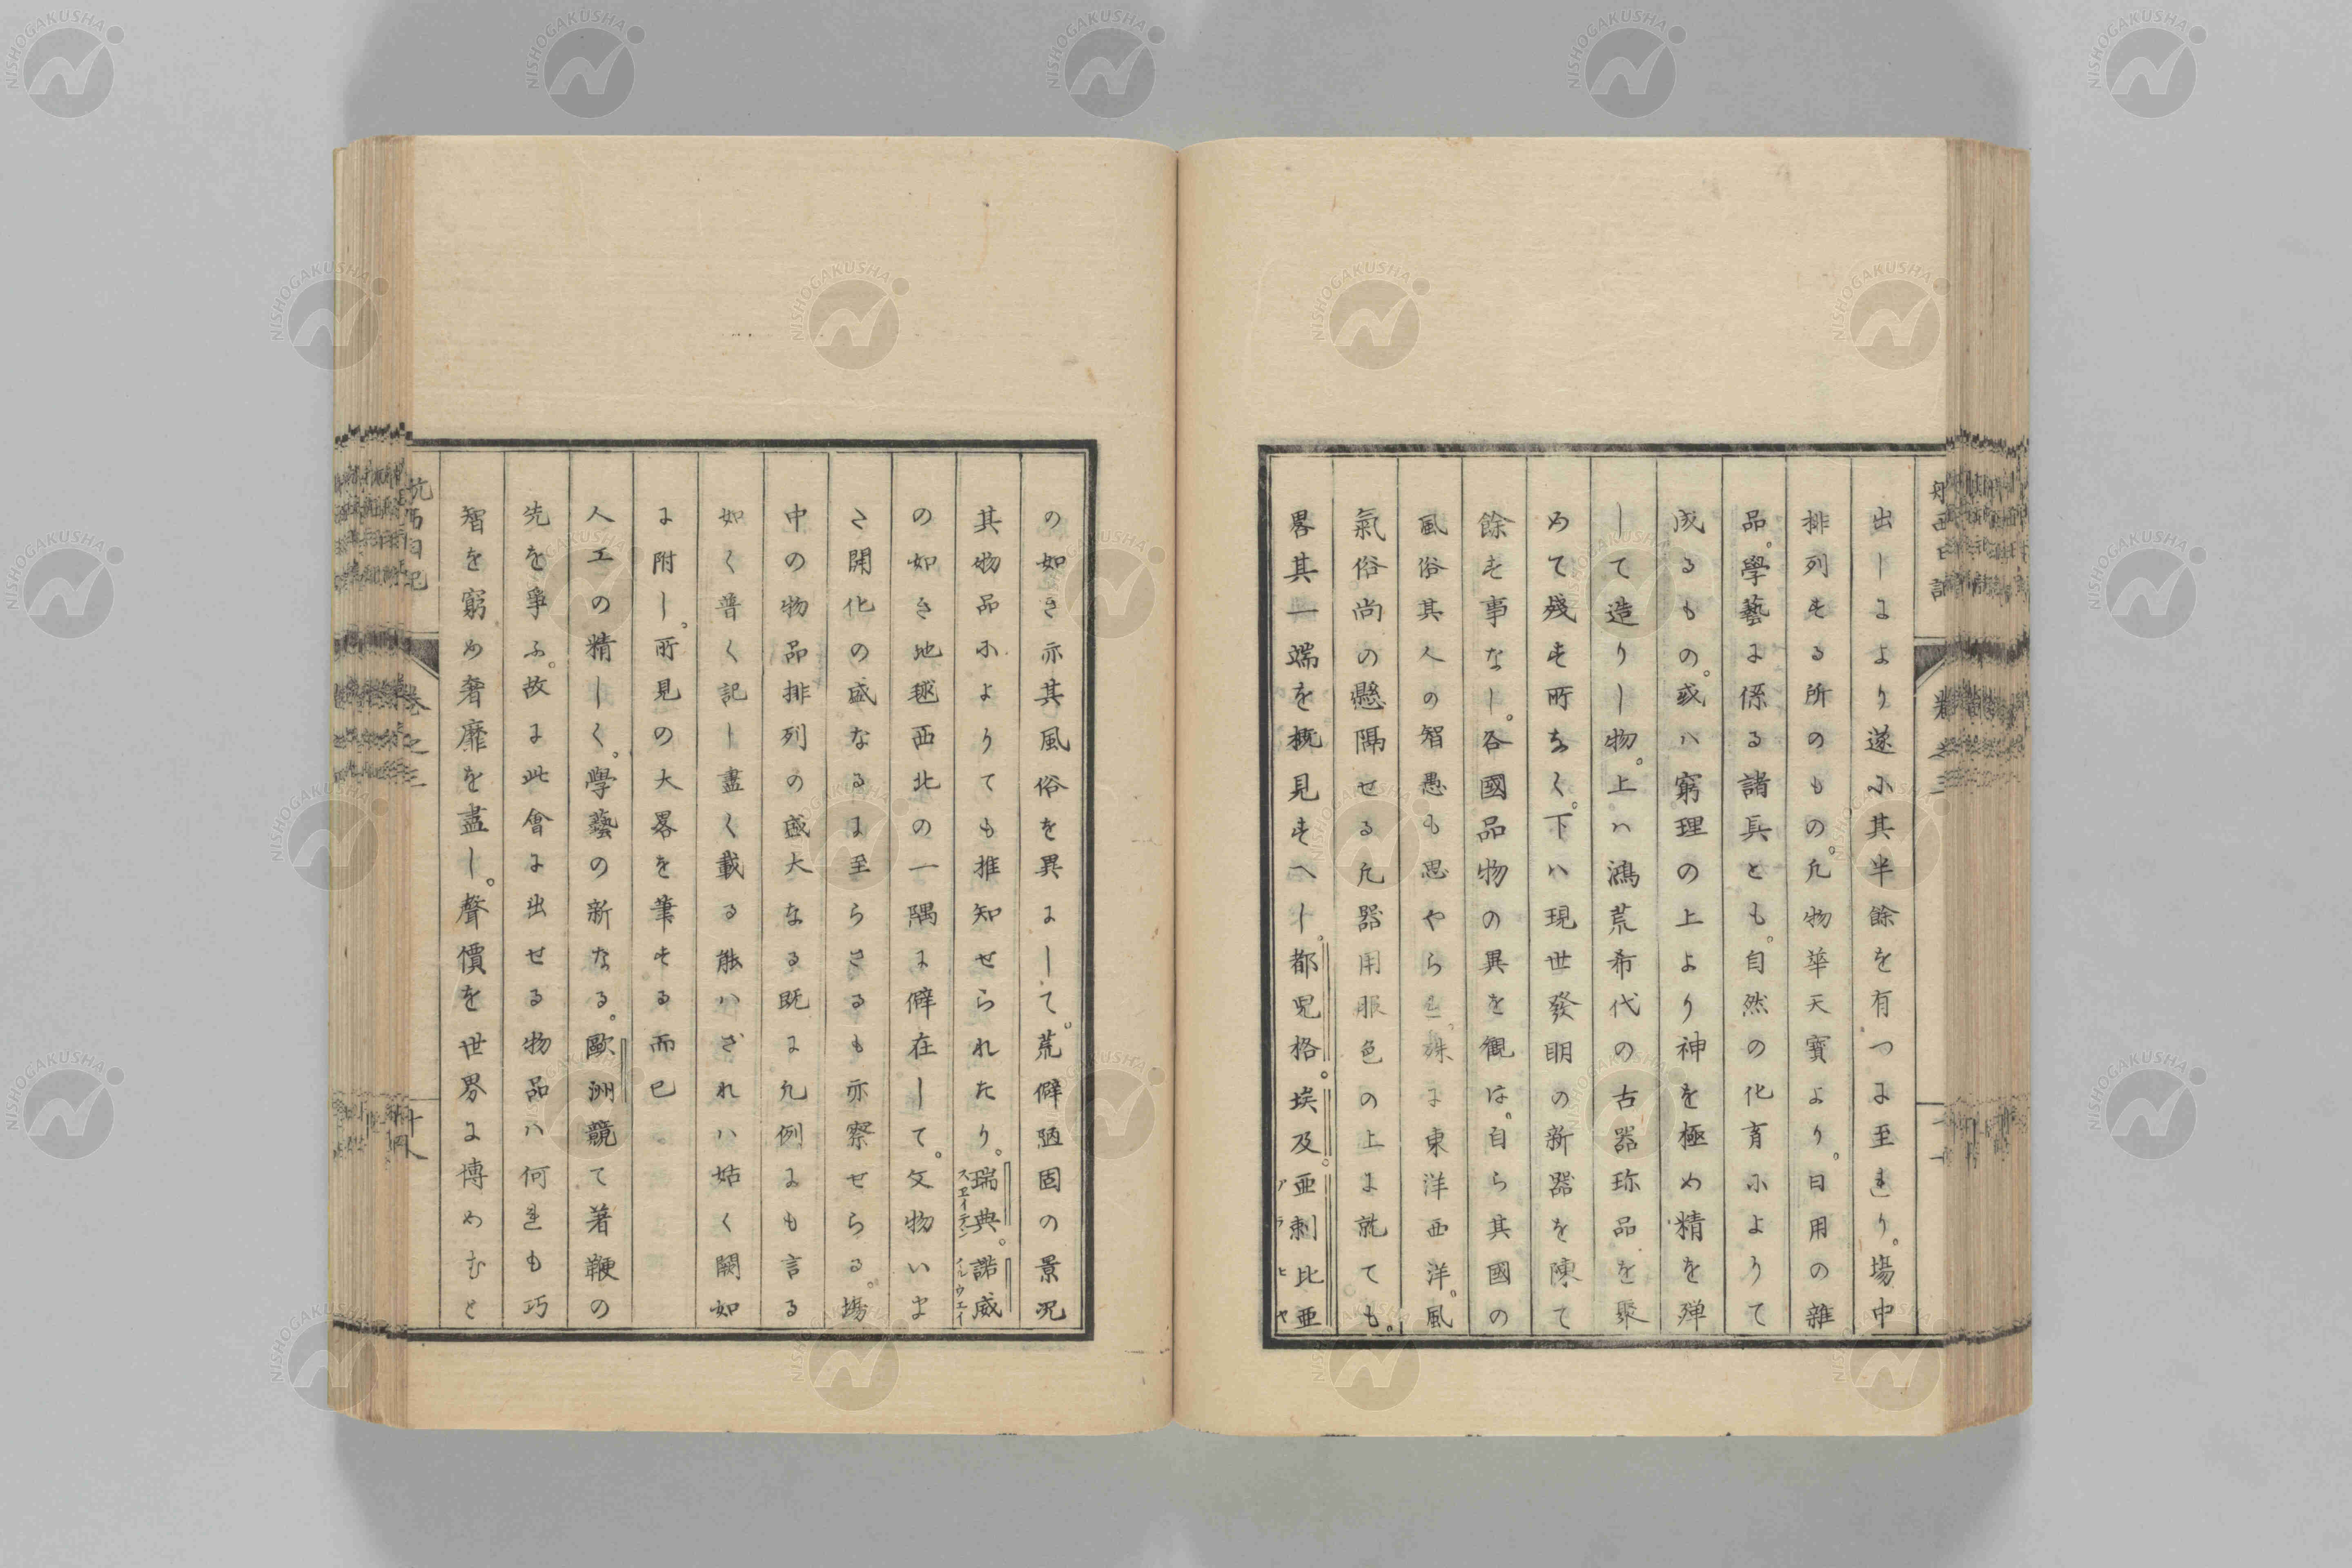 出しにより遂に其半餘を有つに至れり。場中
排列する所のもの。凡物華天寶より。日用の雜
品。學藝に係る諸具とも。自然の化育によりて
成るもの。或ハ窮理の上より神を極め精を殫
して造りし物。上ハ鴻荒希代の古器珎品を聚
めて殘す所なく。下ハ現世發明の新器を陳て
餘す事なし。各國品物の異を觀は。自ら其國の
風俗其人の智愚も思やられ。殊に東洋西洋。風
氣俗尚の懸隔せる凡器用服色の上に就ても。
畧其一端を概見すへし。都児格。埃及。亜剌比亜
アラヒヤ
の如き亦其風俗を異にして。荒僻陋固の景况
其物品によりても推知せられたり。瑞典。諾威
スヱイデン ノルウエイ
の如き地毬西北の一隅に僻在して。文物いま
た開化の盛なるに至らさるも亦察せらる。場
中の物品排列の盛大なる既に凡例にも言る
如く普く記し盡く載る能ハざれハ姑く闕如
に附し。所見の大畧を筆する而已
人工の精しく。學藝の新なる。歐洲競て著鞭の
先を爭ふ。故に此會に出せる物品ハ何れも巧
智を窮め奢靡を盡し。聲價を世界に博めむと
航西日記
巻之三
NISHOGAKUSHA